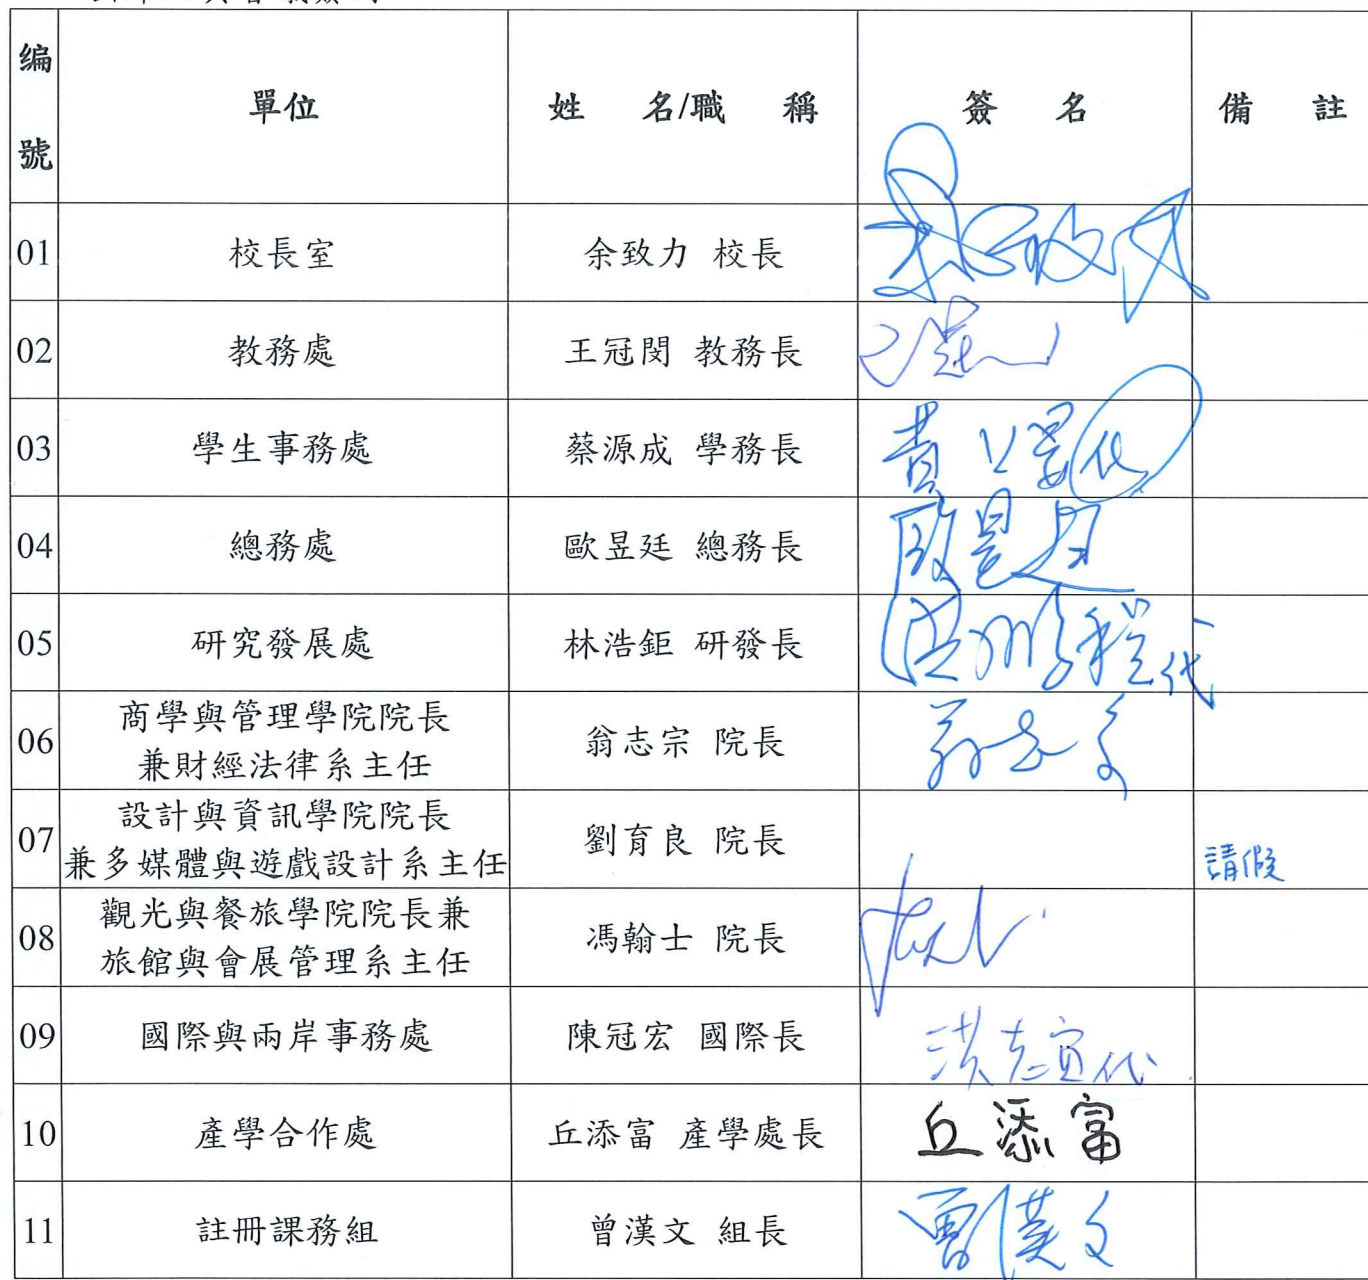 编
號
單位
姓 名/職 稱
簽 名
備 註
01 校長室 余致力 校長
02 教務處 王冠閔 教務長
03 學生事務處 蔡源成 學務長 代
04 總務處 歐昱廷 總務長 歐昱廷
05 研究發展處 林浩鉅 研發長 代
06 商學與管理學院院長
兼財經法律系主任 翁志宗 院長
07 設計與資訊學院院長
兼多媒體與遊戲設計系主任 劉育良 院長 請假
08 觀光與餐旅學院院長兼
旅館與會展管理系主任 馮翰士 院長
09 國際與兩岸事務處 陳冠宏 國際長 洪志宜代
10 產學合作處 丘添富 產學處長 丘添富
11 註冊課務組 曾漢文 組長 曾漢文